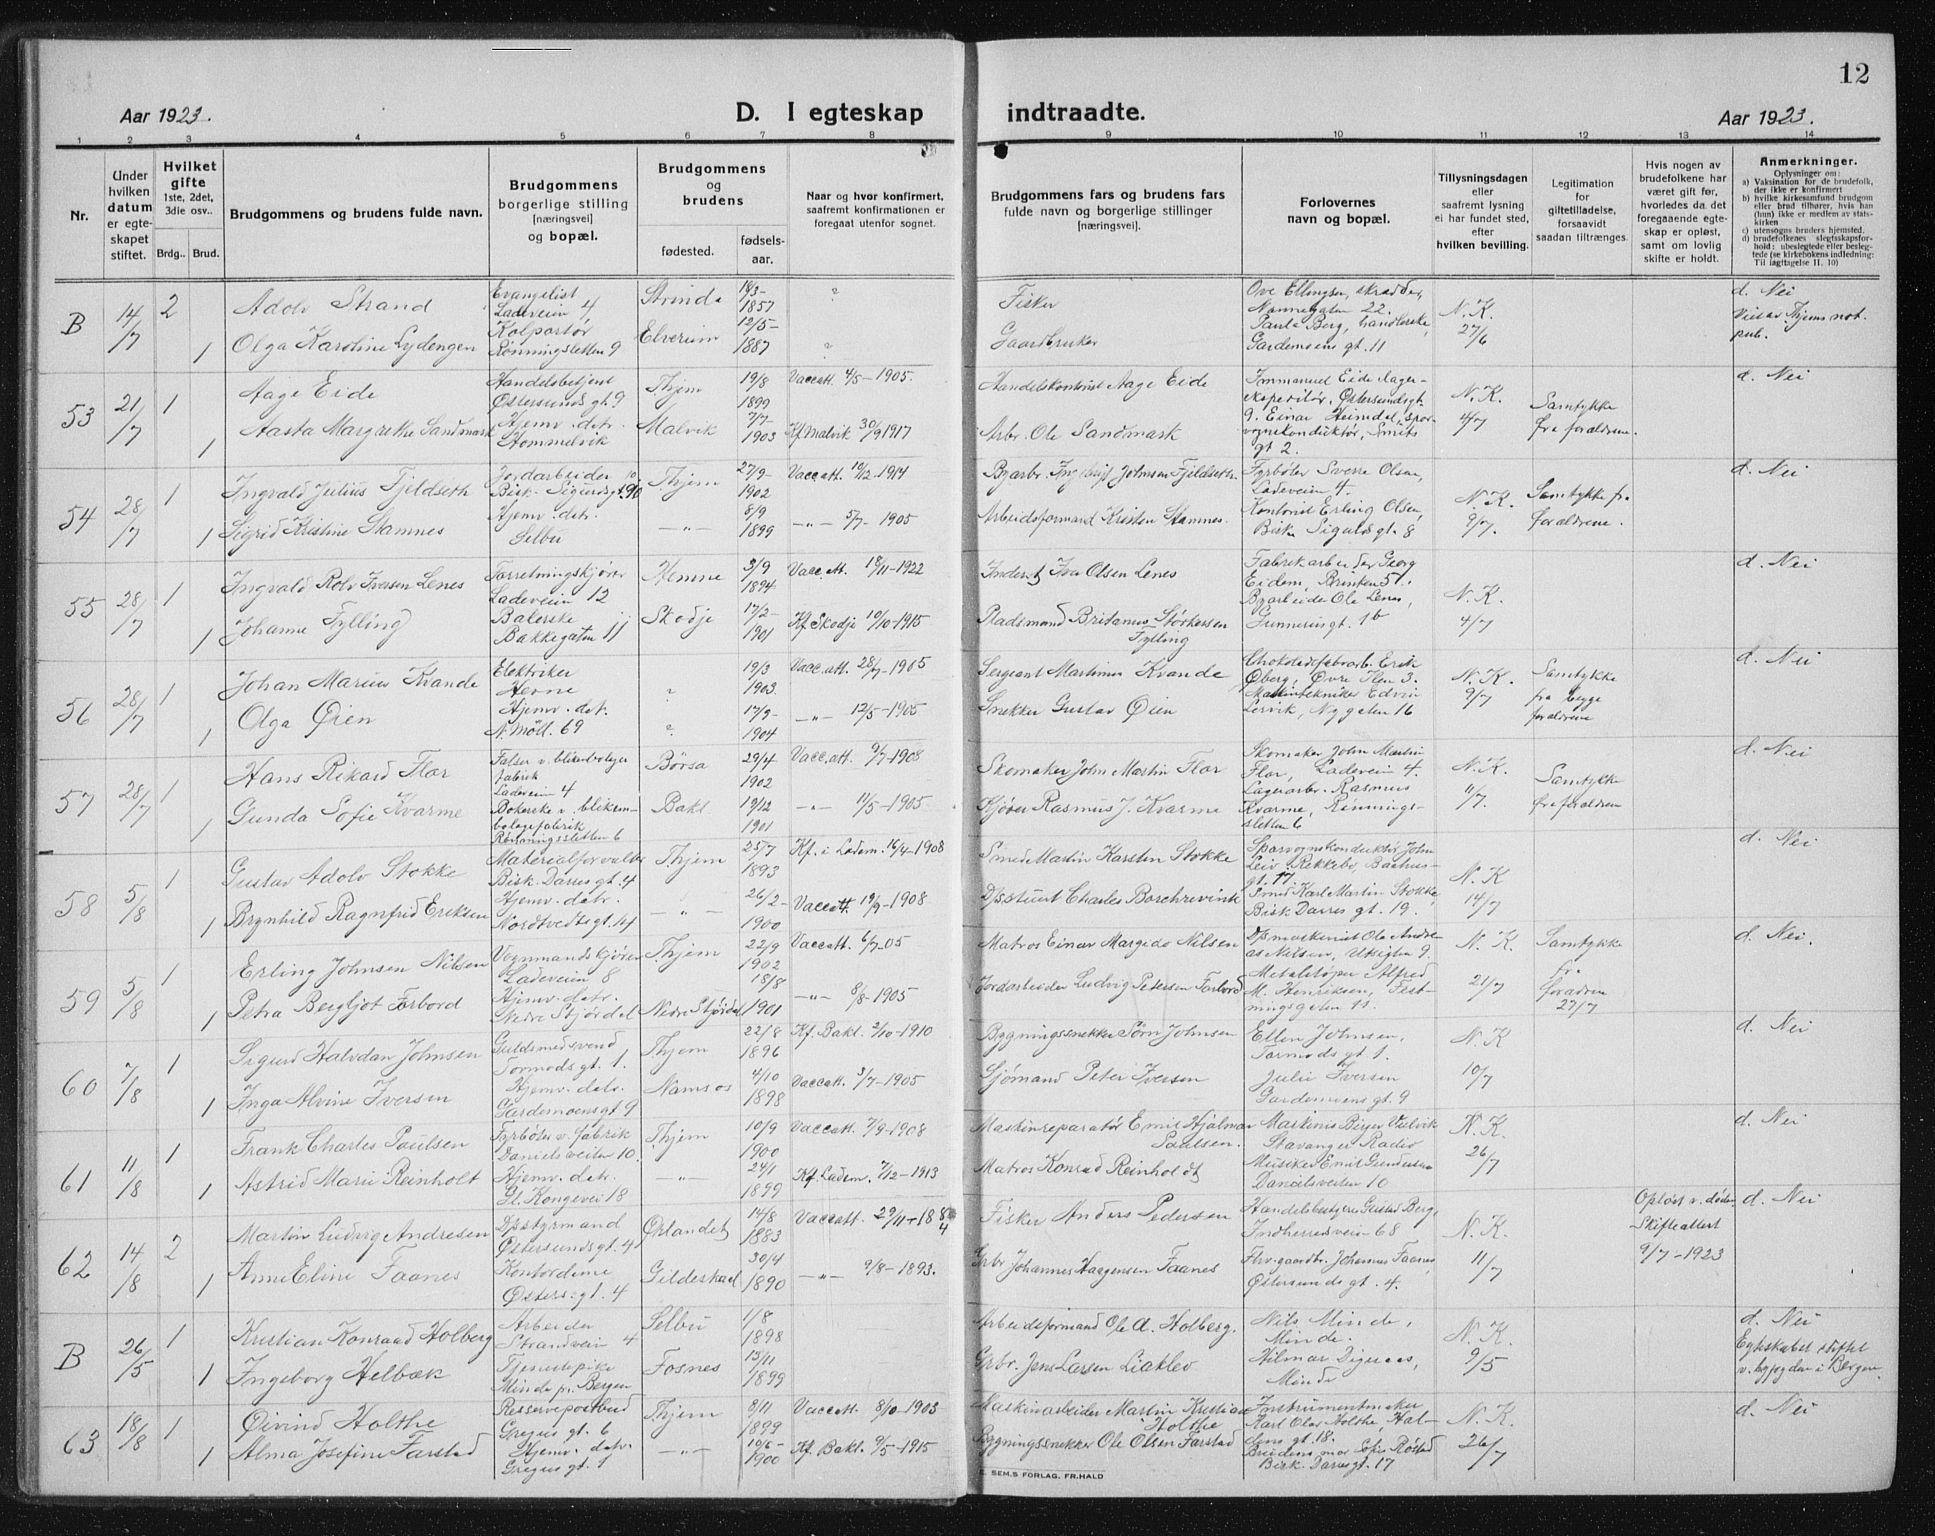 12
Aar 1923.
D. I egteskap indtraadte.
Aar 1923.
1 2 3 4 5 6 7 8 9 10 11 12 13 14
Nr.
Under hvilken datum er egteskapet stiftet.
Hvilket gifte 1ste, 2det, 3die osv..
Brdg.. Brud.
Brudgommens og brudens fulde navn.
Brudgommens borgerlige stilling [næringsvei] og bopæl.
Brudgommens og brudens
fødested.
fødselsaar.
Naar og hvor konfirmert, saafremt konfirmationen er foregaat utenfor sognet.
Brudgommens fars og brudens fars fulde navn og borgerlige stillinger [næringsvei].
Forlovernes navn og bopæl.
Tillysningsdagen eller saafremt lysning ei har fundet sted, efter hvilken bevilling.
Legitimation for giltetilladelse, forsaavidt saadan tiltrænges.
Hvis nogen av brudefolkene har været gift før, hvorledes da det foregaaende egteskap er opløst, samt om lovlig skifte er holdt.
Anmerkninger.
Oplysninger om:
a) Vaksination for de brudefolk, der ikke er konfirmert
b) hvilke kirkesamfund brudgom eller brud tilhører, hvis han (hun) ikke er medlem av statskirken
c) utensogns bruders hjemsted.
d) brudefolkenes slegtsskapsforhold: ubeslegtede eller beslegtede (se kirkebokens indledning: Til iagttagelse II. 10)
B 14/7 2 Adolv Strand Evangelist Ladeveien 4 Strinda 18/3-1857 ? Fisker Ove Ellingsen, skrædder, Nonnegaten 22. N. K. 27/6 d. Nei
1 Olga Karoline Lydengen Kolportør Rønningsletten 9 Elverum 12/5-1887 ? Gaardbruker Paula Berg, handlerske, Gardemoens gt. 11 Thjems not. pub.
53 21/7 1 Aage Eide Handelsbetjent Østersunds gt. 9 Thjem 19/8 1899 Vaccatt. 4/5-1905. Handelskontorist Aage Eide Immanuel Eide lagerekspeditør, Østersundsgt. 9. N. K. 4/7 Samtykke fra forældrene. d. Nei
1 Aasta Margrethe Sandmark Hjemv. detr. Hommelvik Malvik 7/7-1903 Kf. Malvik 30/9 1917 Arbr. Ole Sandmark Einar Heimdal, sporvognskonduktør, Smits gt 2.
54 28/7 1 Ingvald Julius Fjeldseth Jordarbeider Bisk. Sigurdsgt. Thjem 27/9-1902 Vaccatt. 10/12-1914 Byarbr. Johnsen Fjeldseth Fyrbøter Sverre Olsen, Ladeveien 4. N. K. 9/7 Samtykke fra forældrene. d. Nei
1 Sigrid Kristine Stamnes Hjemv. detr. Selbu —"— 8/9 1899 —"— 5/7-1905 Arbeidsformand Kristen Stamnes. Kontorist Erling Olsen, Bisk. Sigurds gt. 8
55 28/7 1 Ingvald Rolv Iversen Lenes Forretningskjører Ladeveien 12 Hemne 3/9 1894 Vacc. att. 18/11-1922 Inderst Iva Olsen Lenes Fabrikarbeider Georg Eidem, Brinken 57. N. K. 4/7 d. Nei
1 Johanne Fylling Bakerske Bakkegaten 11 Skodje 17/2-1901 Kf. Skodje 10/10-1915 Pladsmand Britanus Størkersen Fylling Byarbeider Ole Lenes, Gunnerus gt. 1b
56 28/7 1 Johan Marius Kvande Elektriker Hevne ? 19/3 1903. Vacc. att. 28/7-1905 Sergeant Martinus Kvande Chokoladefabrarb. Erik Øberg, Øvre Ilen 3. N. K. 9/7 Samtykke fra begge forældrene d. Nei
1 Olga Øien Hjemv. detr. N. Møll. 69 ? 17/9-1904 —"— 12/5-1905 Snekker Gustav Øien Maskintekniker Edvin Lervik, Nygaten 16
57 28/7 1 Hans Rikard Flor Falser v. blikemballagefabrik Ladeveien 4 Børsa 29/4 1902 Vacc. att. 9/7-1908 Skomaker John Martin Flor Skomaker John Martin Flor, Ladeveien 4. N. K. 11/7. Samtykke fra forældrene d. Nei
1 Gunda Sofie Kvarme Rønningsletten 6 Bakl. 19/12 1901 —"— 11/5-1905 Kjører Rasmus J. Kvarme Lagerarbr. Rasmus Kvarme, Rønningsletten 6
58 5/8 1 Gustav Adolv Stokke Materialforvalter Bisk. Darres gt. 4 Thjem 25/7 1893 Kf. i Ladem. 16/4-1908 Smed Martin Karstin Stokke Sporvognskonduktør John Leiv Rekkebo, Baahus gt. 17. N. K 14/7 d. Nei
1 Brynhild Ragnfrid Eriksen Hjemv. detr. Nordtvedts gt. 14 —"— 26/2-1900 Vaccatt. 19/9-1908 D/sstuert Charles Borchrevink Smed Karl Martin Stokke, Bisk. Darres gt. 19.
59 5/8 1 Erling Johnsen Nilsen Vognmandskjører Ladeveien 8 Thjem 22/9 1902 Vaccatt. 6/7-05 Matros Einar Margido Nilsen D/smaskinist Ole Andreas Nilsen, Utsigten 9. N. K. 21/7 Samtykke fr. foradren 27/7 d. Nei.
1 Petra Bergljot Forbord Hjemv. detr. Nedre Stjørdal Nedre Stjørdal 18/8 1901 —"— 8/8-1905 Jordarbeider Ludvig Petersen Forbord Metalstøper Alfred M. Henriksen, Festningsgaten 11.
60 7/8 1 Sigurd Halvdan Johnsen Guldsmedsvend Tormods gt. 1. Thjem 22/8 1896 Kf. Bakl. 2/10-1910 Bygningssnekker Sørn Johnsen Ellen Johnsen, Tormods gt. 1. N. K 10/7 d. Nei
1 Inga Alvine Iversen Hjemv. detr. Gardemoensgt. 9 Namsos 4/10 1898 Vaccatt. 3/7-1905 Sjømand Peter Iversen Julie Iversen Gardemoens gt. 9
61 11/8 1 Frank Charles Paulsen Fyrbøter v. fabrik Danielsveiten 10. Thjem 10/9 1900 Vaccatt. 7/9-1908 Maskinreparatør Emil Hjalmar Paulsen. Martinius Birger Stavanger Radio N. K. 26/7 d. Nei
1 Astrid Marie Reinholt Hjemv. detr. Gl. Kongevei 18 —"— 24/1 1899 Kf. Ladem. 7/12-1913 Matros Konrad Reinholdt Musiker Emil Gundersen Danielsveiten 10
62 14/8 2 Martin Ludvig Andresen D/sstyrmand Østersundsgt. 4 Ørlandet 14/8 1883 Vaccatt. 29/11-1884 Fisker Anders Pedersen Handelsbestyrer Gustad Berg, Indherredsveien 68 N. K. 11/7 Opløst v. døden Skifteattest 9/7-1923 d. Nei
1 Anne Eline Faanes Kontordame Østers. gt. 4 Gildeskaal 30/4 1890 —"— 9/8-1893. Grbr Johannes Haagensen Faanes Johannes Faanes, Østersunds gt. 4.
B 26/5 1 Kristian Konraad Holberg Arbeider Strandveien 4 Selbu 1/8 1898 Arbeidsformand Ole A. Holberg. Nils Minde, Minde. N. K. 9/5 d. Nei Egteskabet stiftet v. byfogden i Bergen.
1 Ingeborg Helbæk Tjenestepike Minde pr. Bergen Fosnes 13/11 1899 Grbr. Jens Larsen Liaklev Hilmar Digenes, Minde
63 18/8 1 Øivind Holthe Reservepostbud Gregus gt. 6 Thjem 8/11 1899 Vaccatt. 8/10-1903 Maskinarbeider Martin Kristian Holthe Instrumentmaker Karl Olav Holthe, N. K. 26/7 d. Nei
1 Alma Josefine Farstad Hjemv. detr. Gregus gt. 1 —"— 19/6-1900 Kf. Bakl. 9/5-1915 Bygningssnekker Ole Olsen Farstad Brudens mor Sofie Røstad Bisk. Darres gt. 17
E. SEM.S FORLAG, FR.HALD